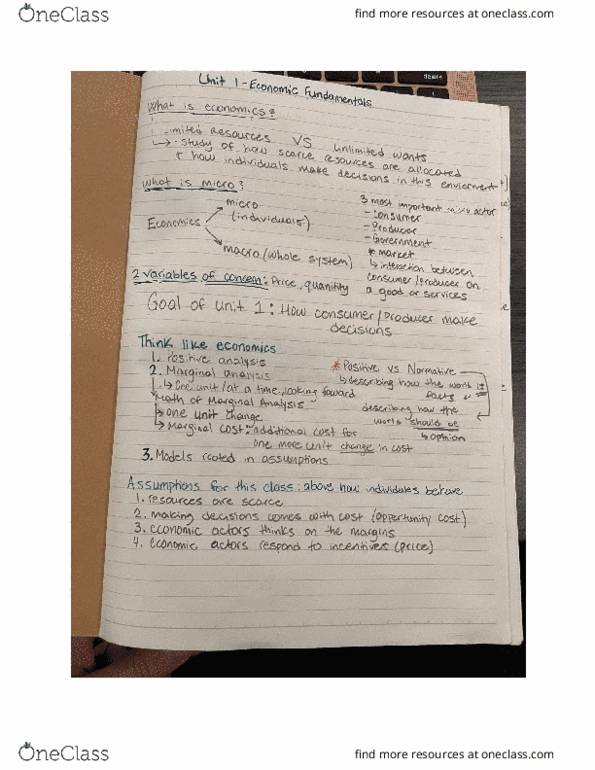 OneClass
find more resources at oneclass.com
Unit 1 - Economic Fundamentals
What is economics?
Limited Resources VS unlimited wants
↳ · Study of how scarce resources are allocated
+ how individuals make decisions in this enviorment
What is micro?
Economics
micro
(individuals)
macro (whole system)
3 most important micro actor
- Consumer
- Producer
- Government
* market
↳ interaction between
consumer/producer on
a good or services
2 variables of concern: Price, quantity
Goal of unit 1: How consumer/Producer make
decisions
Think like economics
1. Positive analysis
2. Marginal analysis
↳ One unit/at a time, looking forward
Math of Marginal Analysis
→ one unit change
→ Marginal cost: additional cost for
one more unit change in cost
3. Models rooted in assumptions
* Positive vs Normative
↳ describing how the world is
facts
describing how the
world should be
↳ opinion
Assumptions for this class: above how individules behave
1. resources are scarce
2. making decisions comes with cost (opportunity cost)
3. economic actors thinks on the margins
4. economic actors respond to incentives (price)
OneClass
find more resources at oneclass.com